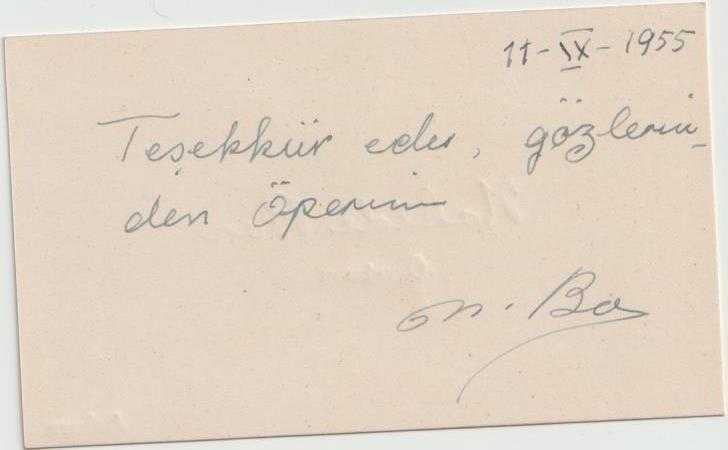 11-IX-1955
Teşekkür eder, gözlerin-
den öperim
M. Ba